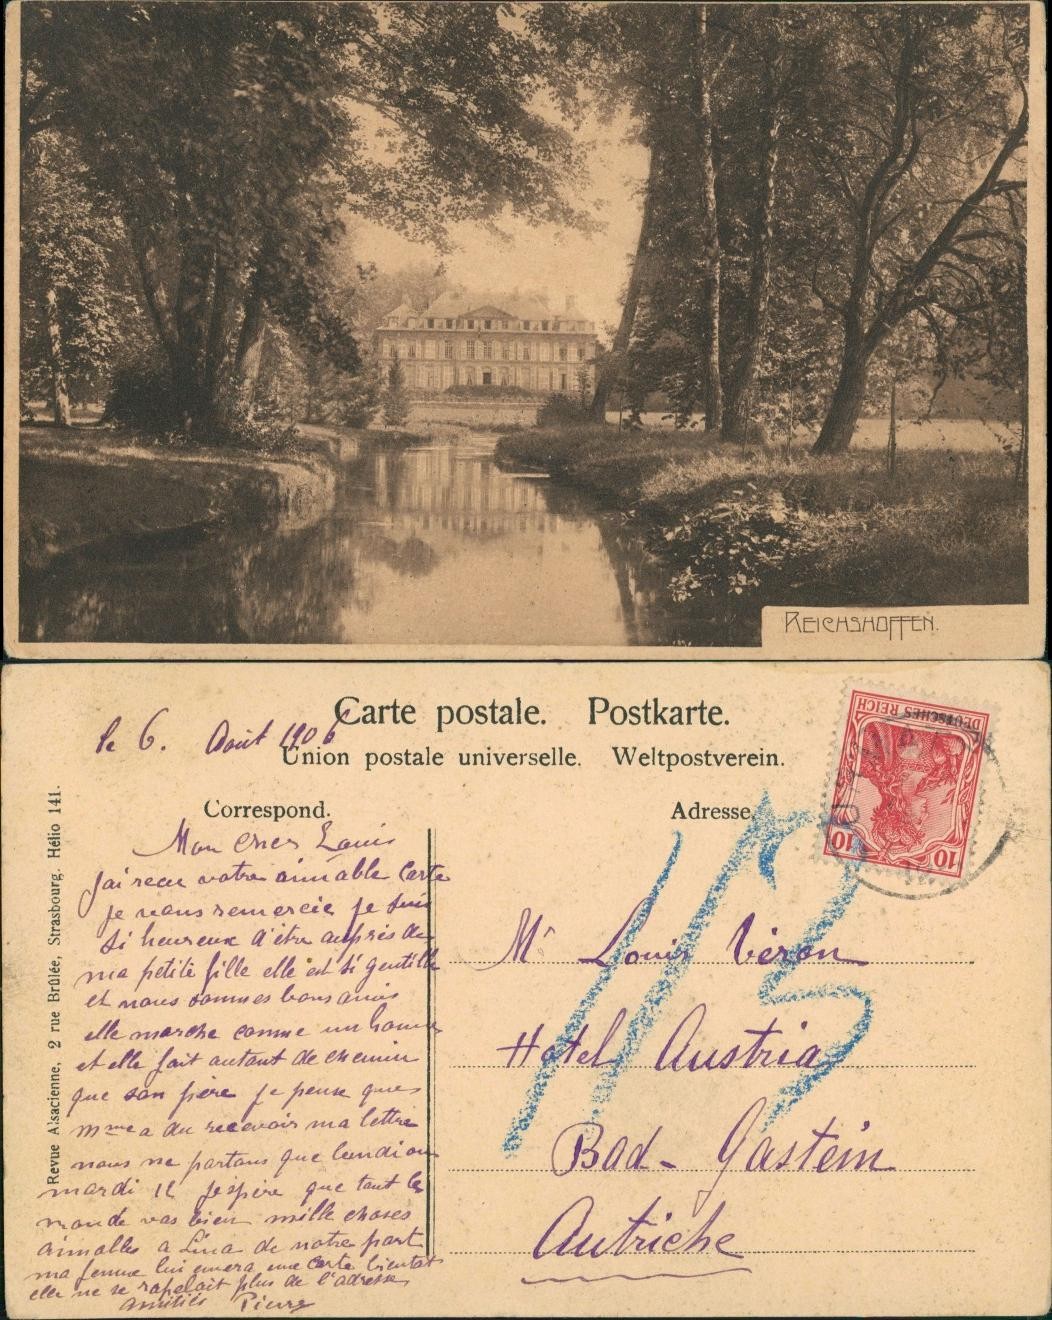 REICHSHOFFEN.
Carte postale. Postkarte.
le 6. Août 1906
Union postale universelle. Weltpostverein.
Correspond.
Adresse.
DEUTSCHES REICH
10 10
Revue Alsacienne, 2 rue Brûlée, Strasbourg. Hélio 141.
Mon cher Louis
j'ai recu votre aimable Carte
je vous remercie je suis
si heureux d'être auprés de
ma petite fille elle est si gentille
et nous sommes bons amis
elle marche comme un homme
et elle fait autant de chemin
que son père je pense que
Mme a du recevoir ma lettre
nous ne partons que lundi ou
mardi je espère que tout le
monde vas bien mille choses
aimables a Lina de notre part
ma femme lui envera une Carte bientot
elle ne se rapelait plus de l'adresse
amitiés Pierre
113
Mr Louis Véron
Hotel Austria
Bad-Gastein
Autriche